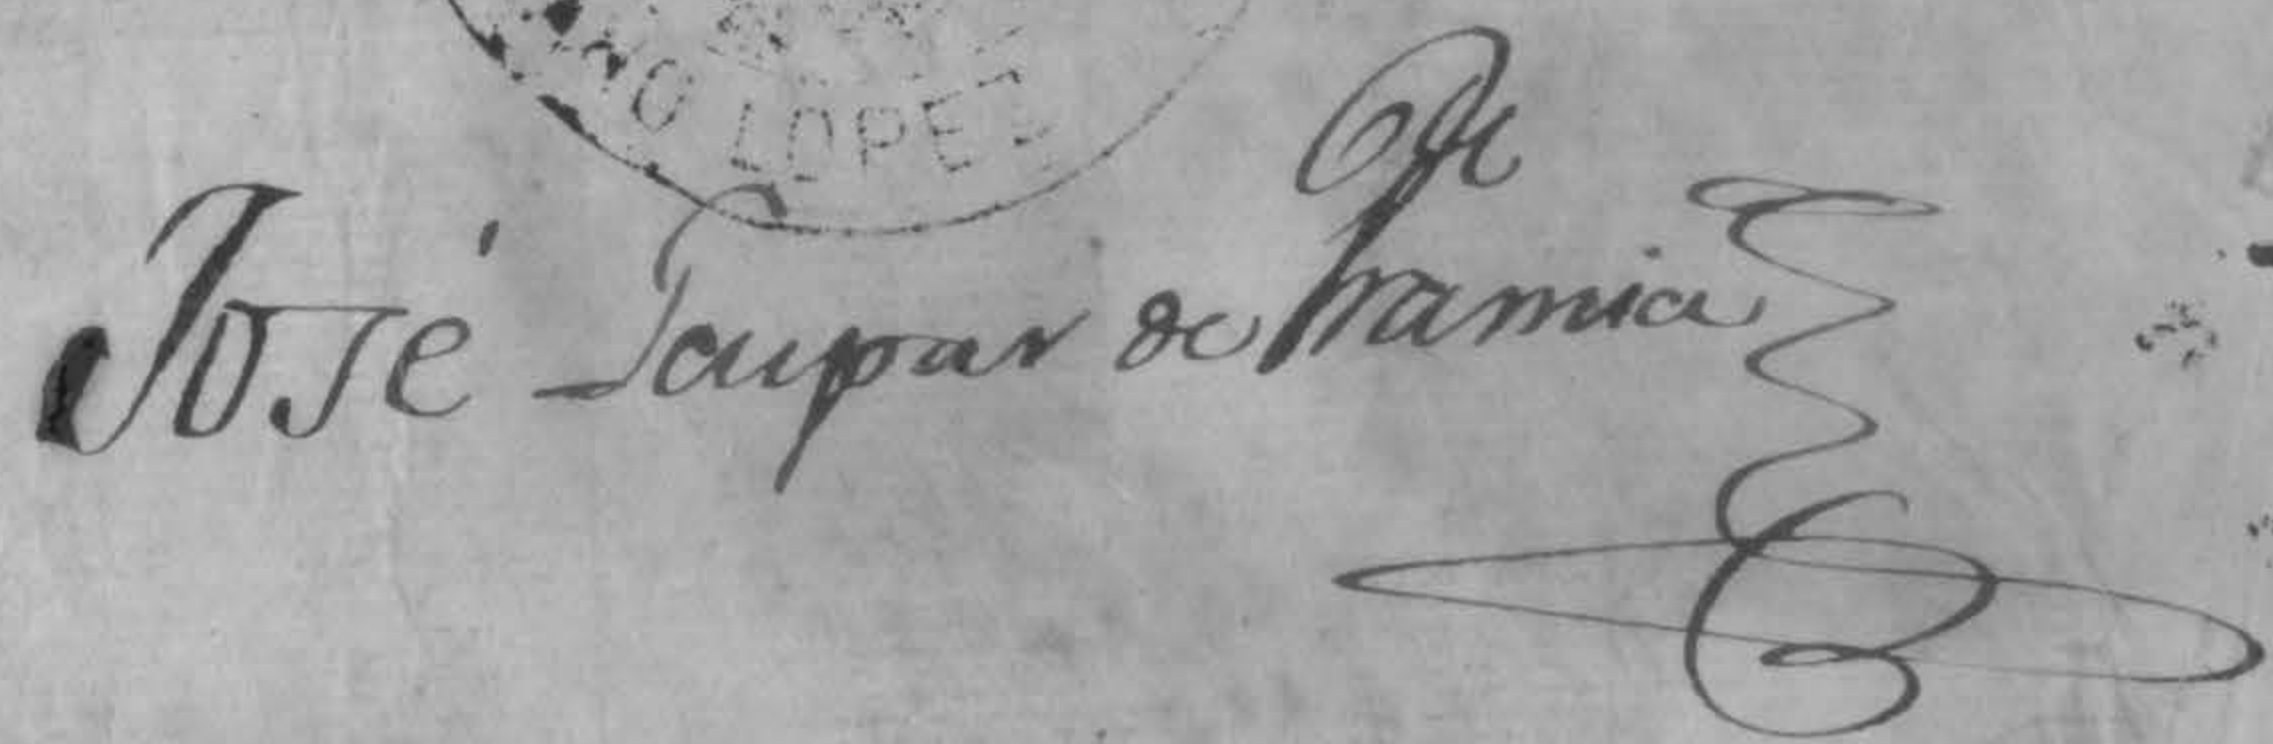 NO LOPEZ
José Gaspar de Francia